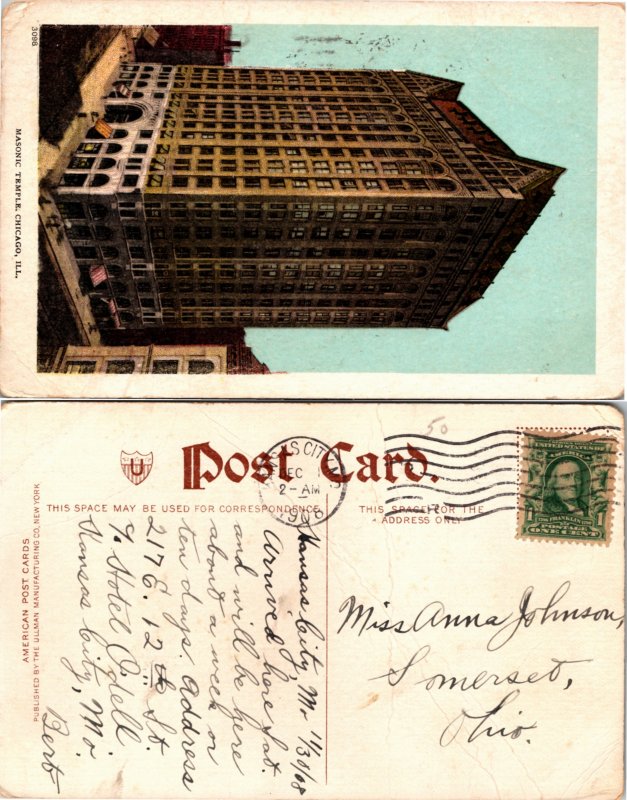 3098
MASONIC TEMPLE, CHICAGO, ILL.
Post Card.
U
50
KANSAS CITY, MO.
DEC 1
2-AM
1908
THIS SPACE MAY BE USED FOR CORRESPONDENCE
THIS SPACE FOR THE
ADDRESS ONLY
UNITED STATES
OF AMERICA
FRANKLIN
1 1
ONE CENT
AMERICAN POST CARDS.
PUBLISHED BY THE ULLMAN MANUFACTURING CO. NEW YORK
Kansas City, Mo 11/30/08
Arrived here Sat.
and will be here
about a week or
ten days. Address
217 E. 12th St.
% Hotel Odell
Kansas City, Mo.
Bert
Miss Anna Johnson,
Somerset,
Ohio.